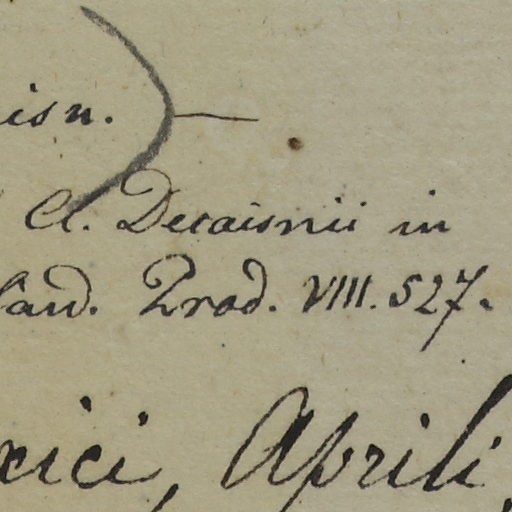 isn. ) —
Cl. Decaisnii in
Cand. Prod. VIII. 527.
xici, Aprili